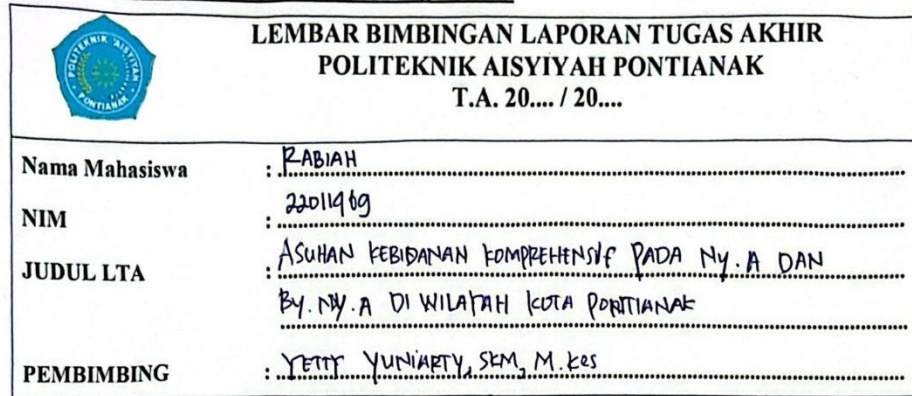 POLITEKNIK 'AISYIYAH
PONTIANAK
LEMBAR BIMBINGAN LAPORAN TUGAS AKHIR
POLITEKNIK AISYIYAH PONTIANAK
T.A. 20.... / 20....
Nama Mahasiswa : RABIAH
NIM : 22011969
JUDUL LTA : ASUHAN KEBIDANAN KOMPREHENSIF PADA Ny. A DAN
By. Ny. A DI WILAYAH KOTA PONTIANAK
PEMBIMBING : YETTY YUNIARTY, SKM, M.Kes